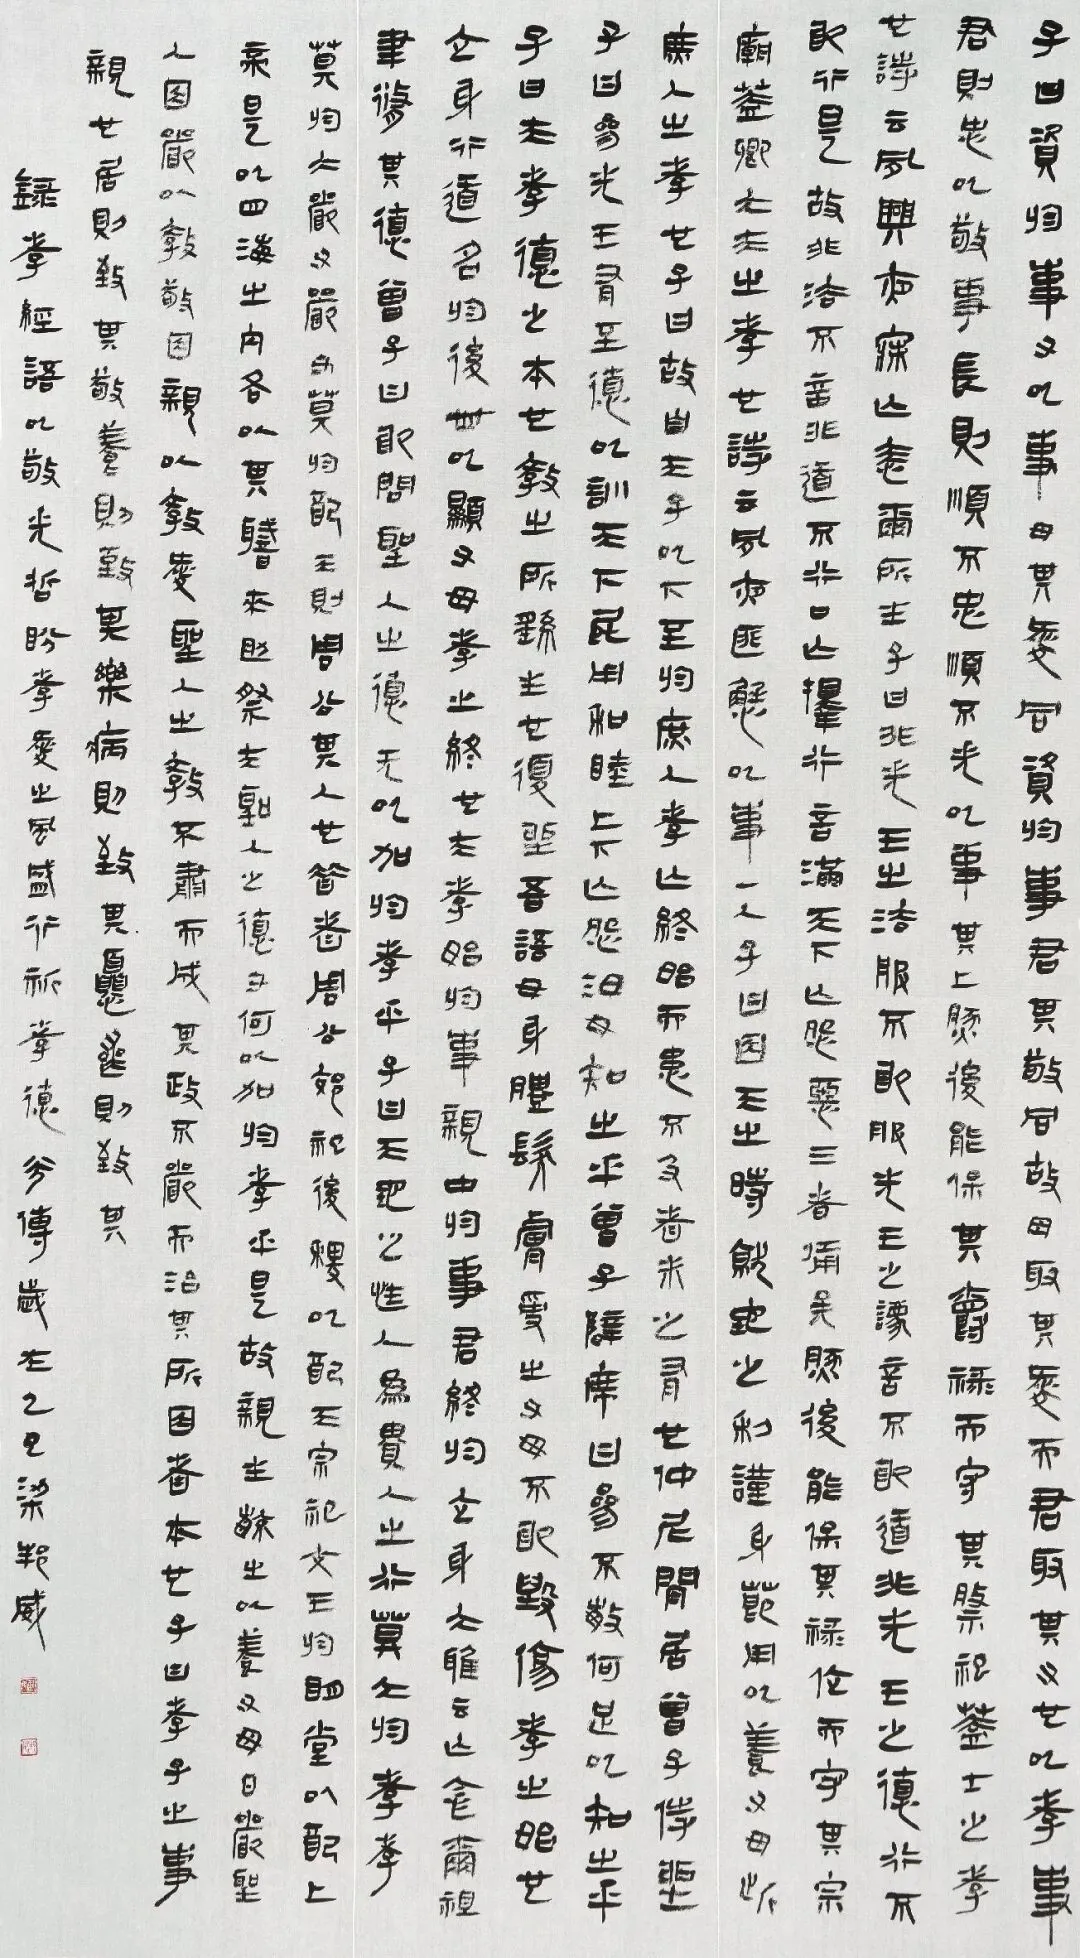 子曰資於事父以事母其愛同資於事君其敬同故母取其愛而君取其父也以孝事
君則忠以敬事長則順不忠順不失以事其上然後能保其爵祿而守其祭祀蓋士之孝
也詩云夙興夜寐亡忝爾所生子曰非先王之法服不敢服先王之讓言不敢道非先王之德行不
敢行是故非法不言非道不行口亡擇行言滿天下亡怨惡三者備矣然後能保其祿位而守其宗
廟蓋卿大夫之孝也詩云夙夜匪懈以事一人子曰因天之時就地之利謹身節用以養父母此
庶人之孝也子曰故自天子以下至於庶人孝亡終始而患不及者未之有也仲尼閒居曾子侍坐
子曰參先王有至德以訓天下民用和睦上下亡怨汝知之乎曾子避席曰參不敏何足以知之乎
子曰夫孝德之本也教之所繇生也復坐吾語汝身體髮膚受之父母不敢毀傷孝之始也
立身行道名於後世以顯父母孝之終也夫孝始於事親中於事君終於立身大雅云亡念爾祖
聿脩其德曾子曰敢問聖人之德无以加於孝乎子曰天地之性人為貴人之行莫大於孝孝
莫於大嚴父嚴父莫於配天則周公其人也昔者周公郊祀後稷以配天宗祀文王於明堂以配上
帝是以四海之內各以其職來助祭夫聖人之德又何以加於孝乎是故親生毓之以養父母日嚴聖
人因嚴以教敬因親以教愛聖人之教不肅而成其政不嚴而治其所因者本也子曰孝子之事
親也居則致其敬養則致其樂病則致其憂喪則致其
錄孝經語以敬先哲盼孝愛之風盛行祈孝德兮傳歲在乙巳梁邦威